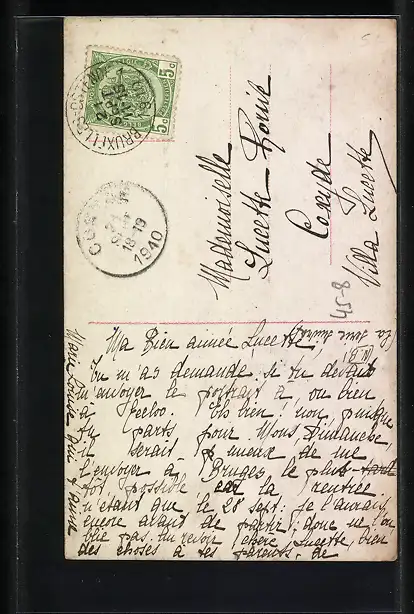 5c 5c
BRUXELLES
1940
Mademoiselle
Lucette
Coxyde
Villa Lucette
45-8
Ma Bien aimée Lucette,
Tu m'as demandé si tu devais
m'envoyer le portrait à, ou bien
à Eecloo. Eh bien! non, puisque
tu parts pour Mons Dimanche,
il serait mieux de me
l'envoyer à Bruges le plus
tôt possible la rentrée
n'étant que le 28 sept. je l'aurais
encore avant de partir; donc ne l'ou
blie pas. Au revoir chère Lucette, bien
des choses à tes parents. de
Marie Louise